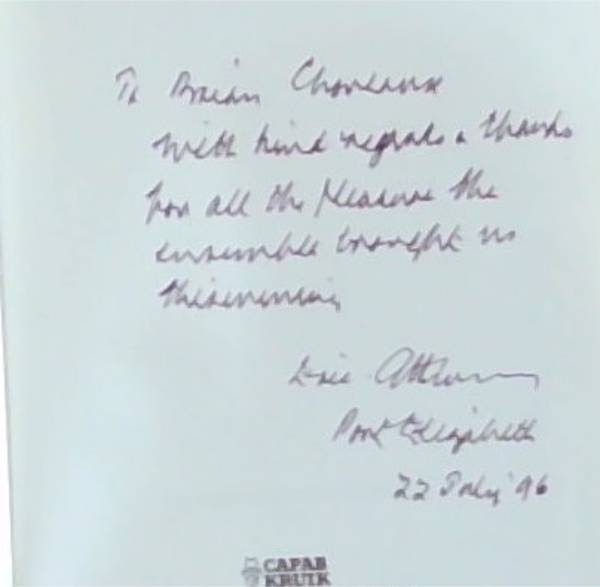 To Brian Choveaux
With kind regards & thanks
for all the pleasure the
ensemble brought us
this evening
Port Elizabeth
22 July '96
CAPAB
KRUIK